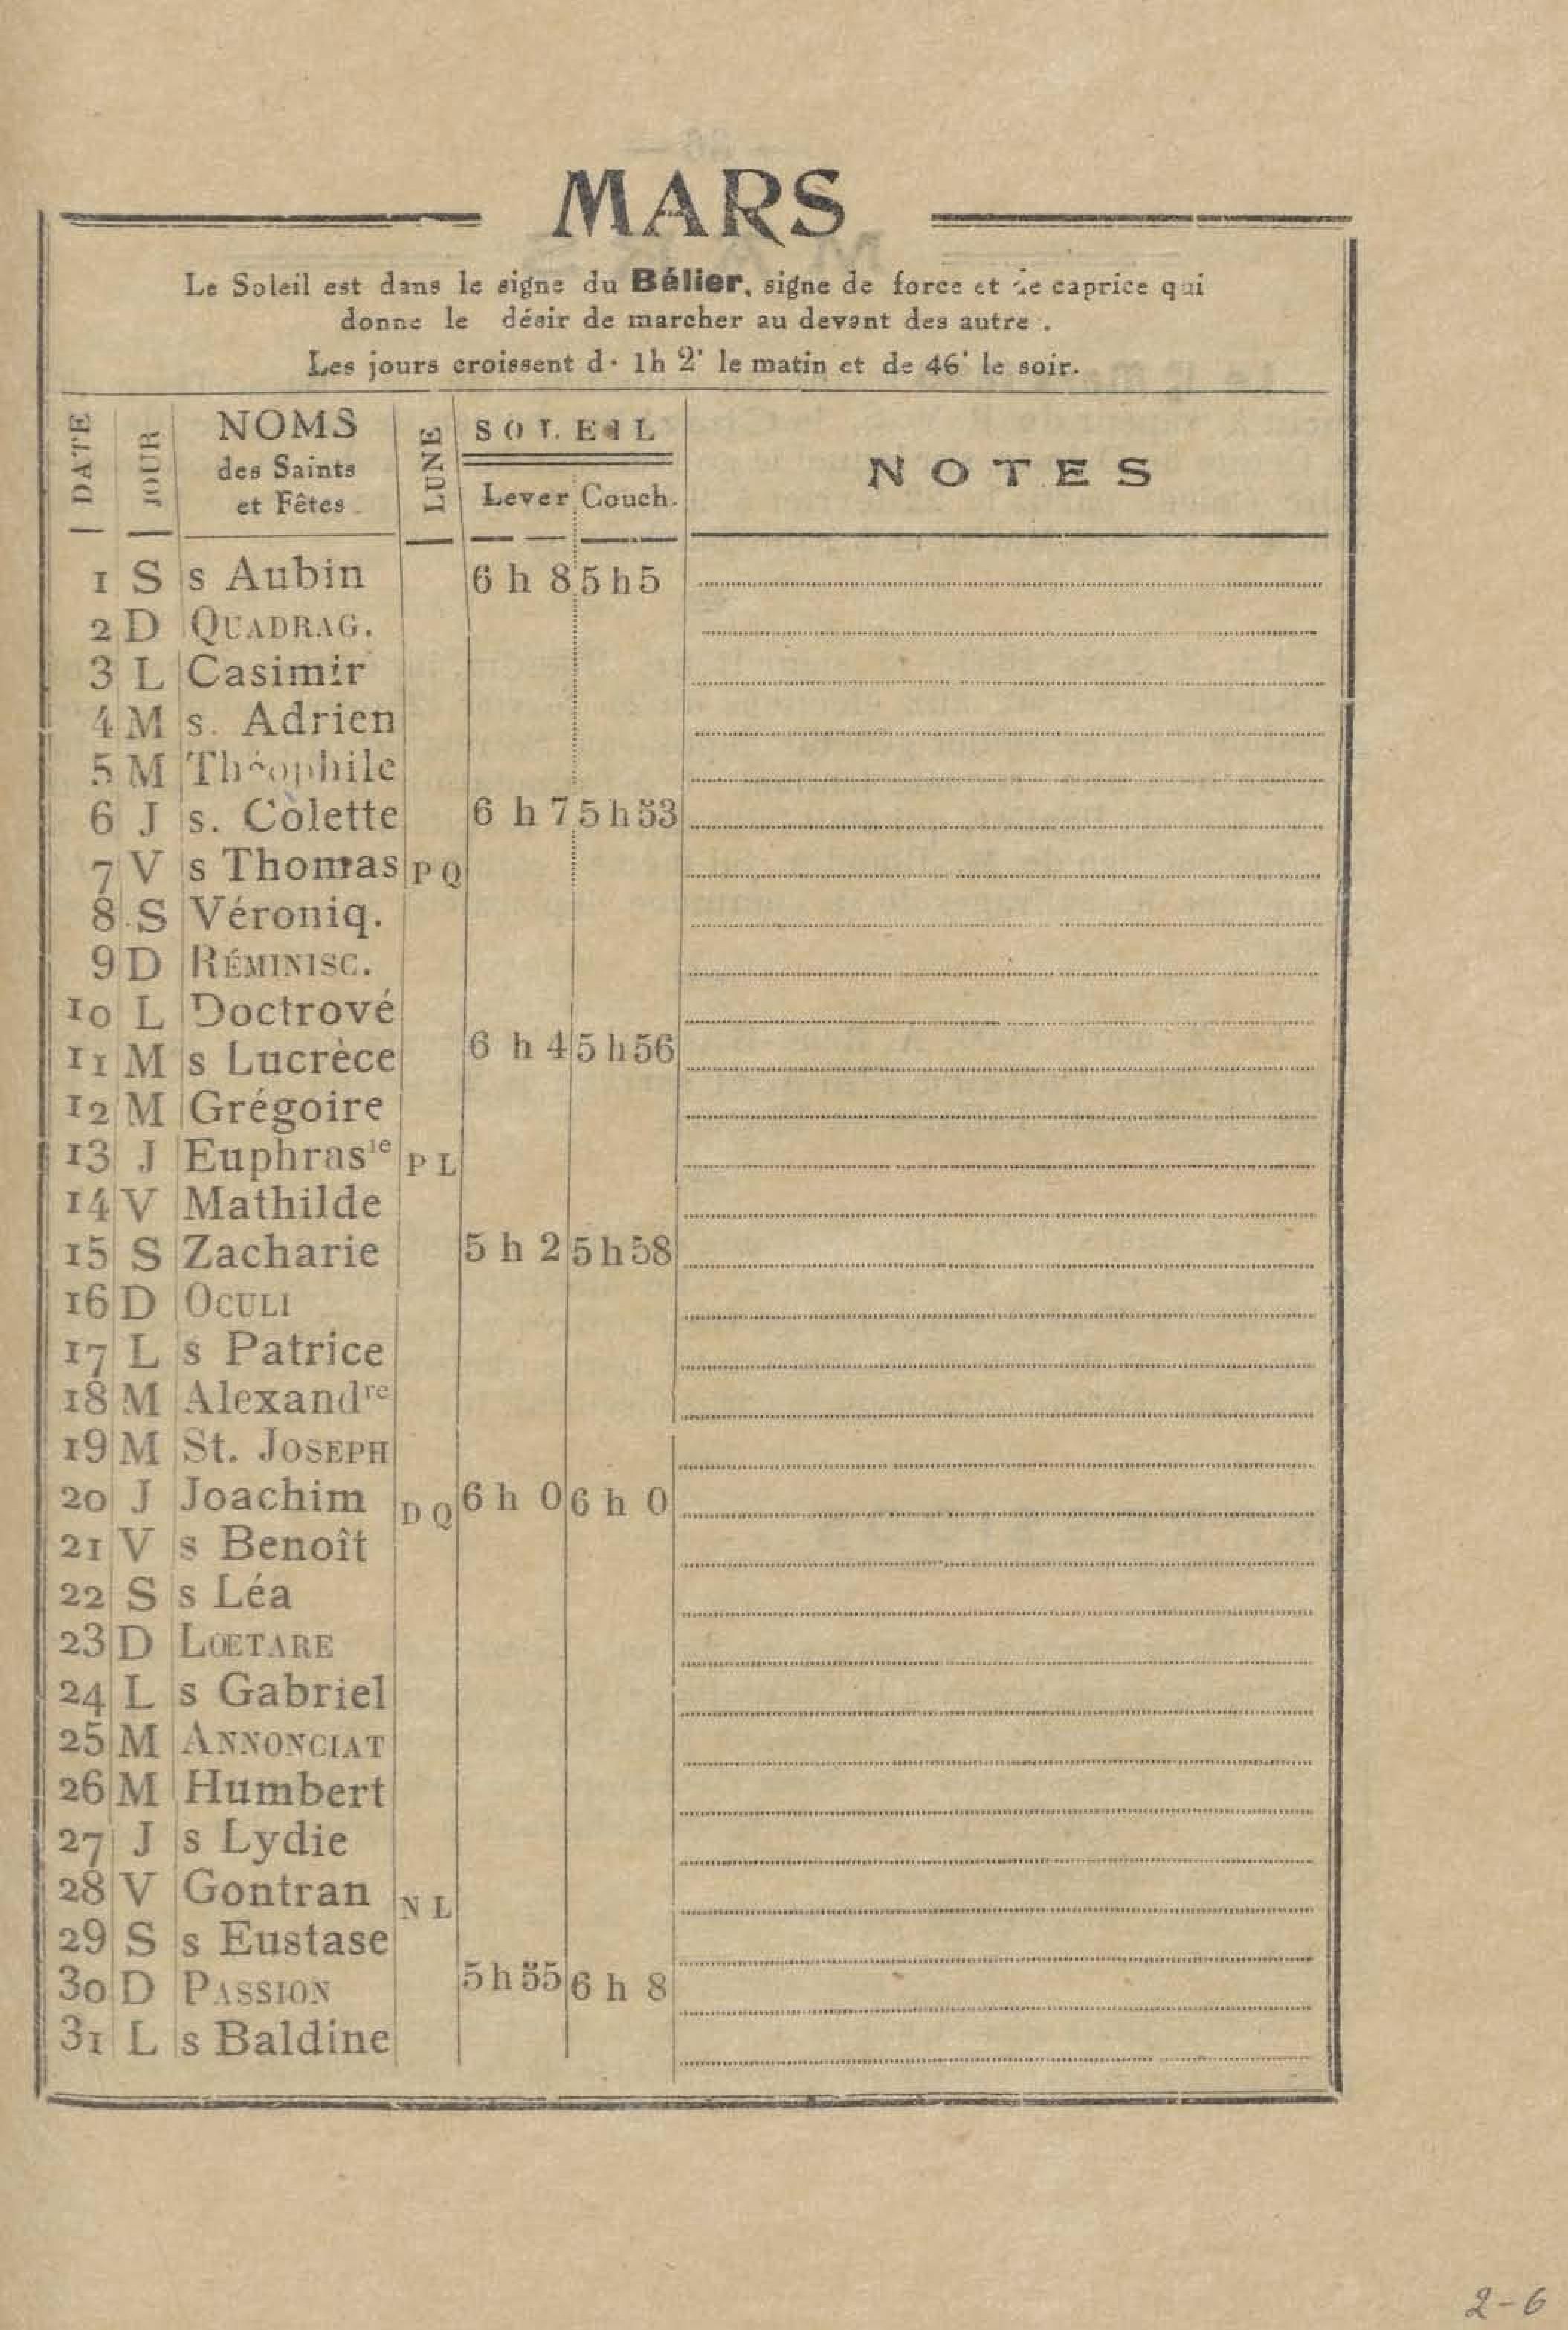 MARS
Le Soleil est dans le signe du Bélier, signe de force et de caprice qui
donne le désir de marcher au devant des autre .
Les jours croissent d· 1h 2' le matin et de 46' le soir.
DATE JOUR NOMS des Saints et Fêtes LUNE SOLEIL Lever Couch. NOTES
1 S s Aubin 6 h 8 5 h 5
2 D QUADRAG.
3 L Casimir
4 M s. Adrien
5 M Théophile
6 J s. Colette 6 h 7 5 h 53
7 V s Thomas P Q
8 S Véroniq.
9 D RÉMINISC.
10 L Doctrové
11 M s Lucrèce 6 h 4 5 h 56
12 M Grégoire
13 J Euphrasie P L
14 V Mathilde
15 S Zacharie 5 h 2 5 h 58
16 D OCULI
17 L s Patrice
18 M Alexandre
19 M St. JOSEPH
20 J Joachim D Q 6 h 0 6 h 0
21 V s Benoît
22 S s Léa
23 D LŒTARE
24 L s Gabriel
25 M ANNONCIAT
26 M Humbert
27 J s Lydie
28 V Gontran N L
29 S s Eustase
30 D PASSION 5 h 55 6 h 8
31 L s Baldine
2-6